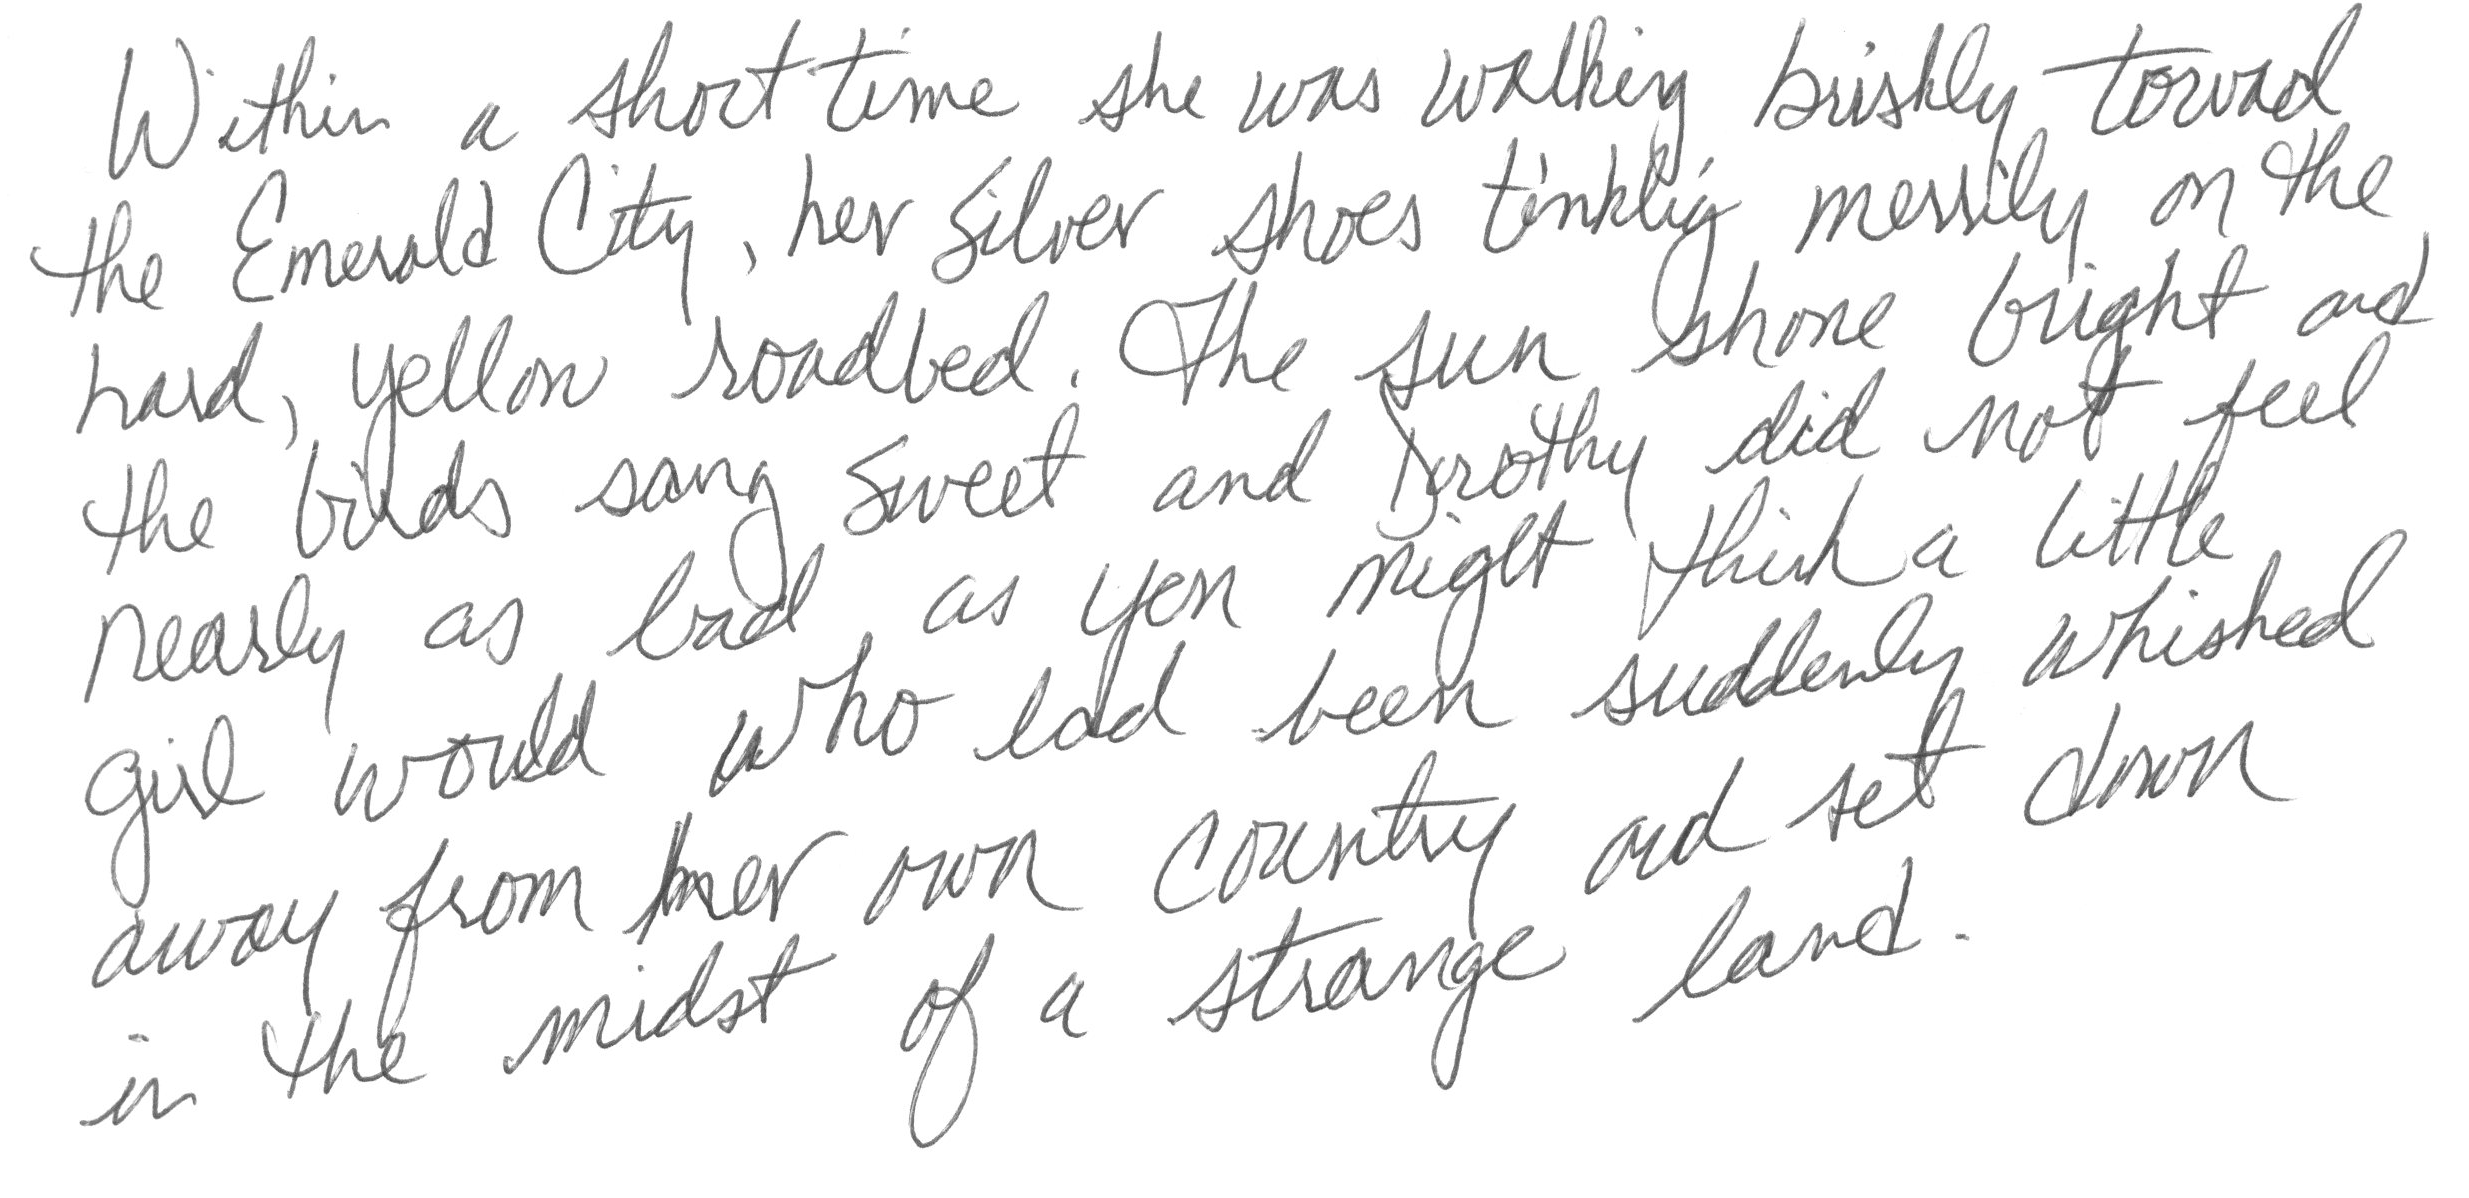 Within a short time she was walking briskly toward
the Emerald City, her silver shoes tinkling merrily on the
hard, yellow roadbed. The sun shone bright and
the birds sang sweet and Dorothy did not feel
nearly as bad as you might think a little
girl would who had been suddenly whished
away from her own country and set down
in the midst of a strange land.